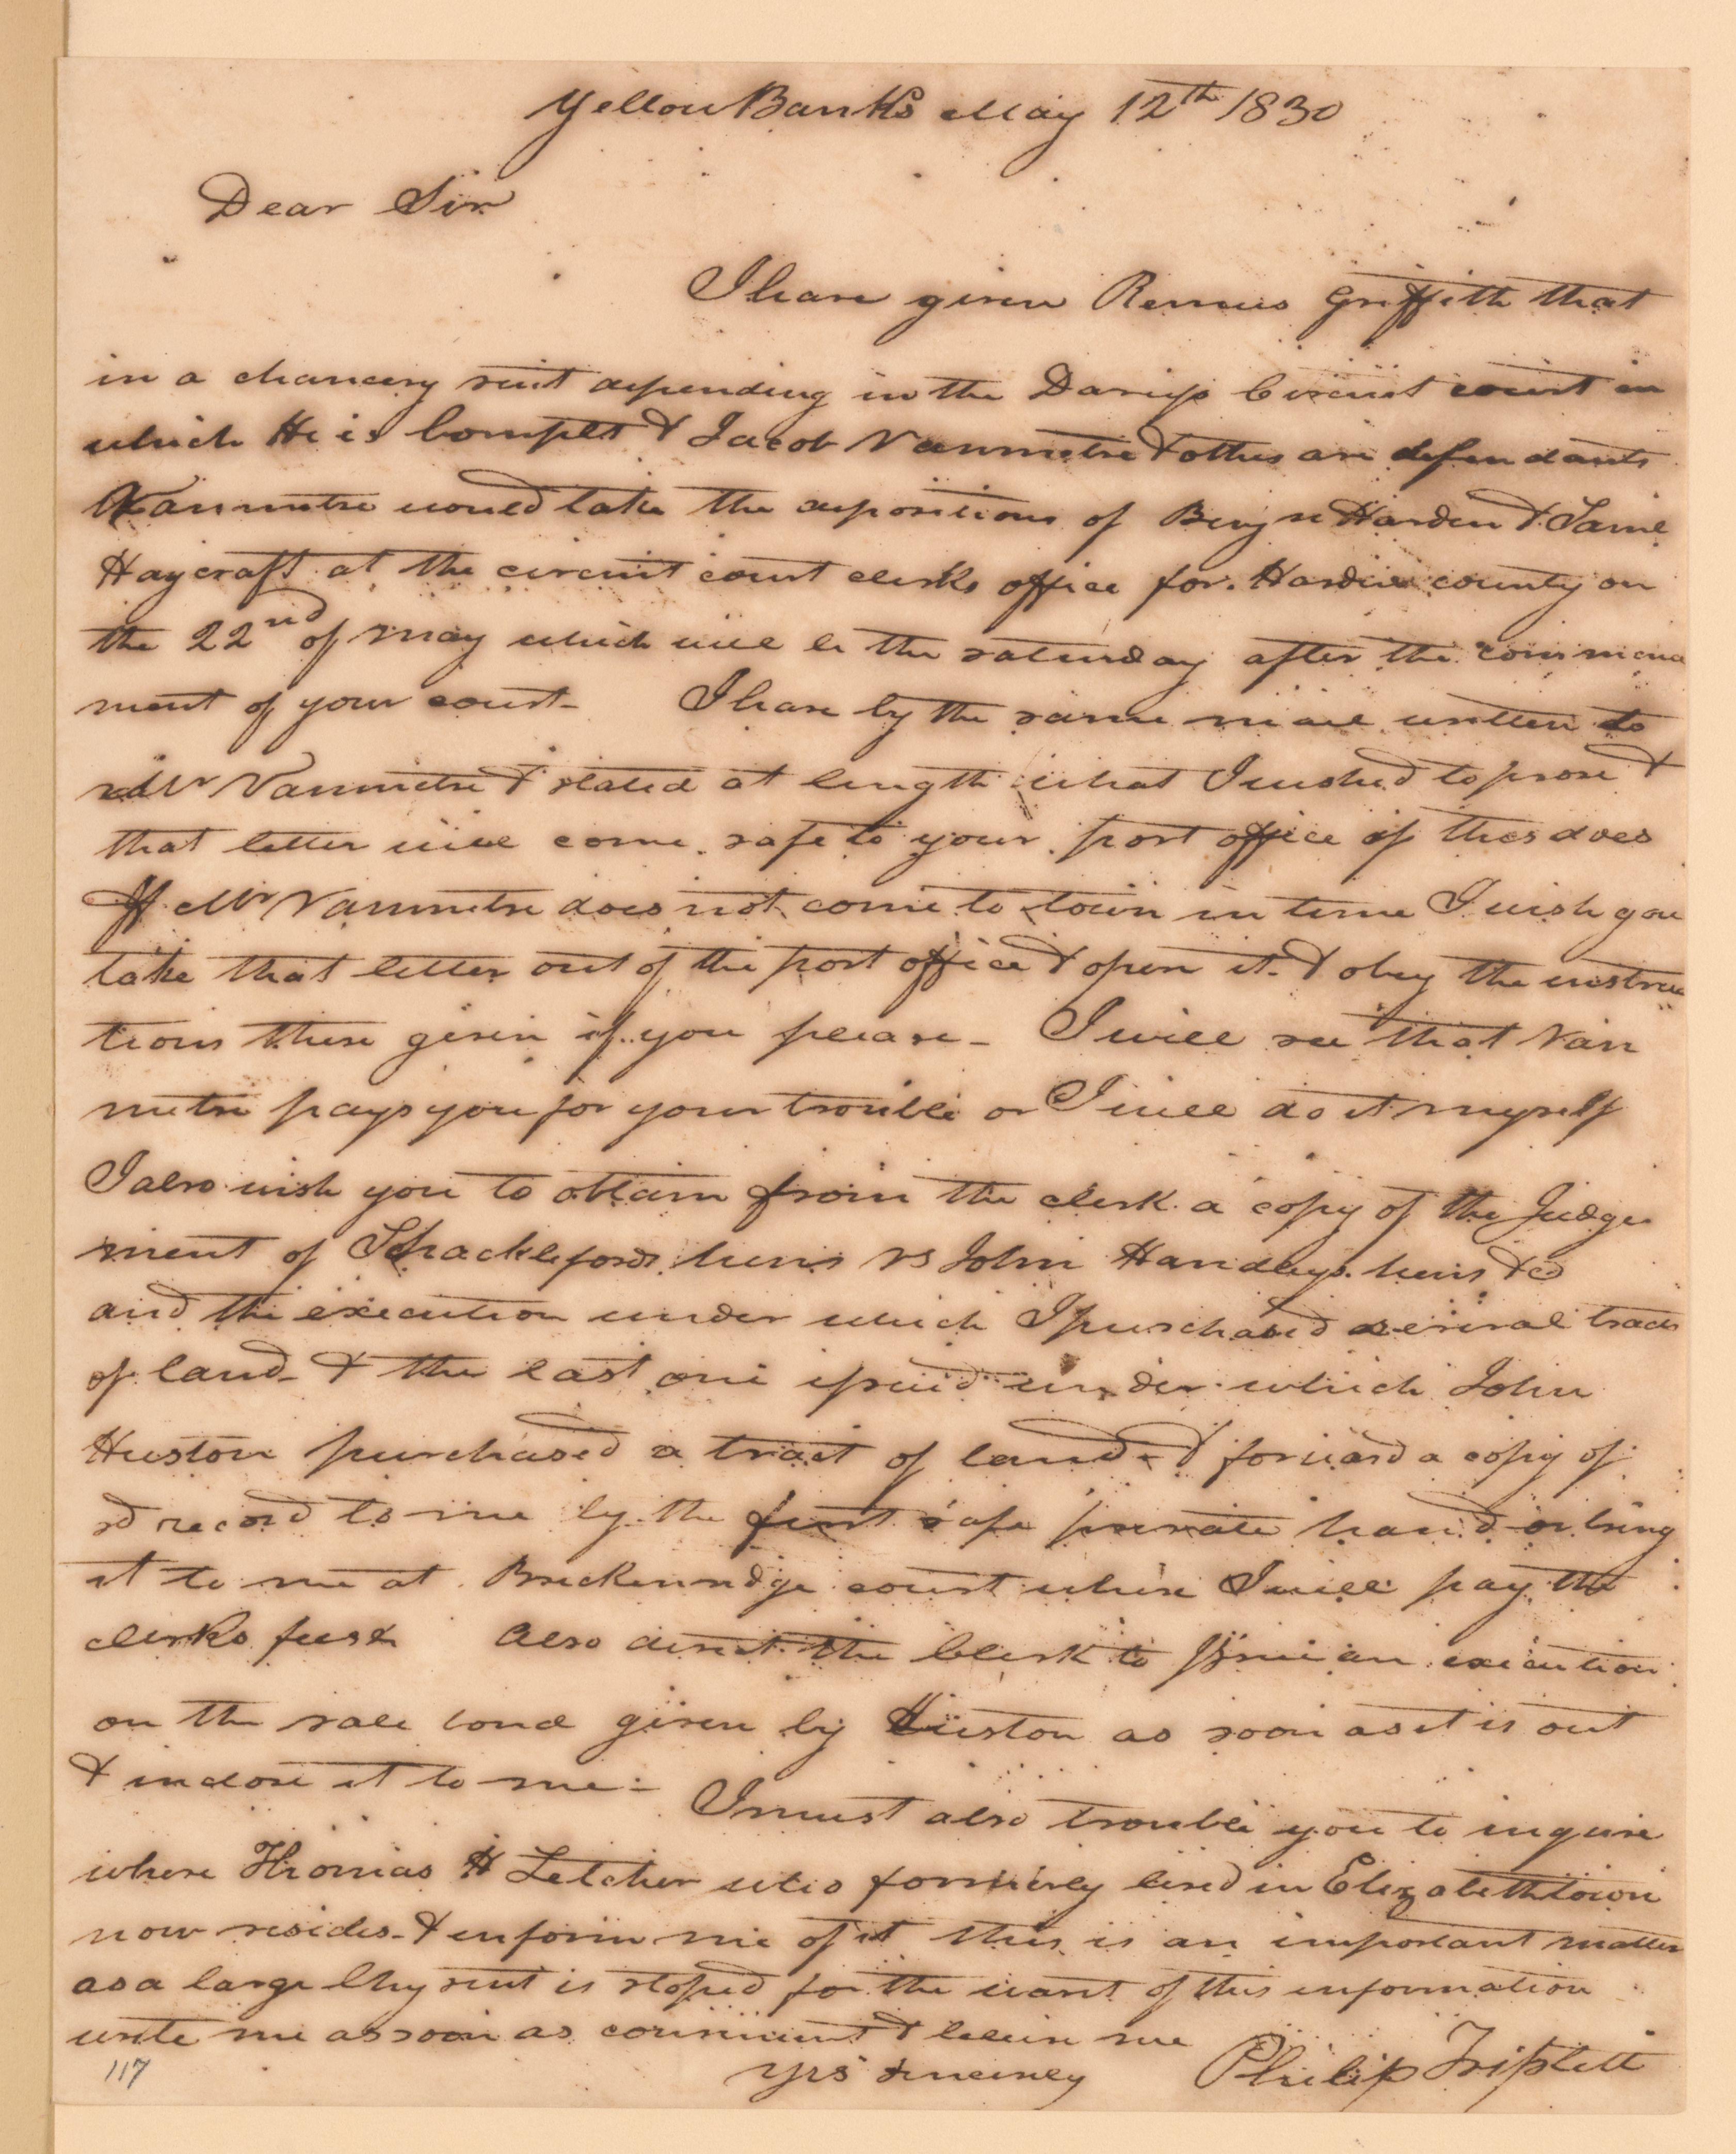 Yellow Banks May 12th 1830
Dear Sir
I have given Remus Griffith that
in a chancery suit depending in the Daviess Circuit court in
which He is Complt & Jacob Vanmetre & others are defendants
Vanmetre would take the depositions of Benjn Harden & Saml
Haycraft at the circuit court clerks office for Hardin county on
the 22nd of may which will be the saturday after the commence
ment of your court- I have by the same mail written to
Mr Vanmetre & stated at length what I wished to prove &
that letter will come safe to your post office if this does
If Mr Vanmetre does not come to town in time I wish you
take that letter out of the post office & open it & obey the instruc
tions there given if you please- I will see that Van
metre pays you for your trouble or I will do it myself
I also wish you to obtain from the clerk a copy of the Judge
ment of Shacklefords heirs vs John Handleys heirs &c
and the execution under which I purchased several tracts
of land- & the last one issued under which John
Huston purchased a tract of land- & forward a copy of
sd record to me by the first safe private hand or bring
it to me at Breckenridge court where I will pay the
clerks fees & Also direct the Clerk to issue an execution
on the sale bond given by Huston as soon as it is out
& inclose it to me- I must also trouble you to inquire
where Thomas H Letcher who formerly lived in Elizabethtown
now resides- & inform me of it this is an important matter
as a large Chy suit is stoped for the want of this information
write me as soon as convenient & believe me
yrs sincerely Philip Triplett
117